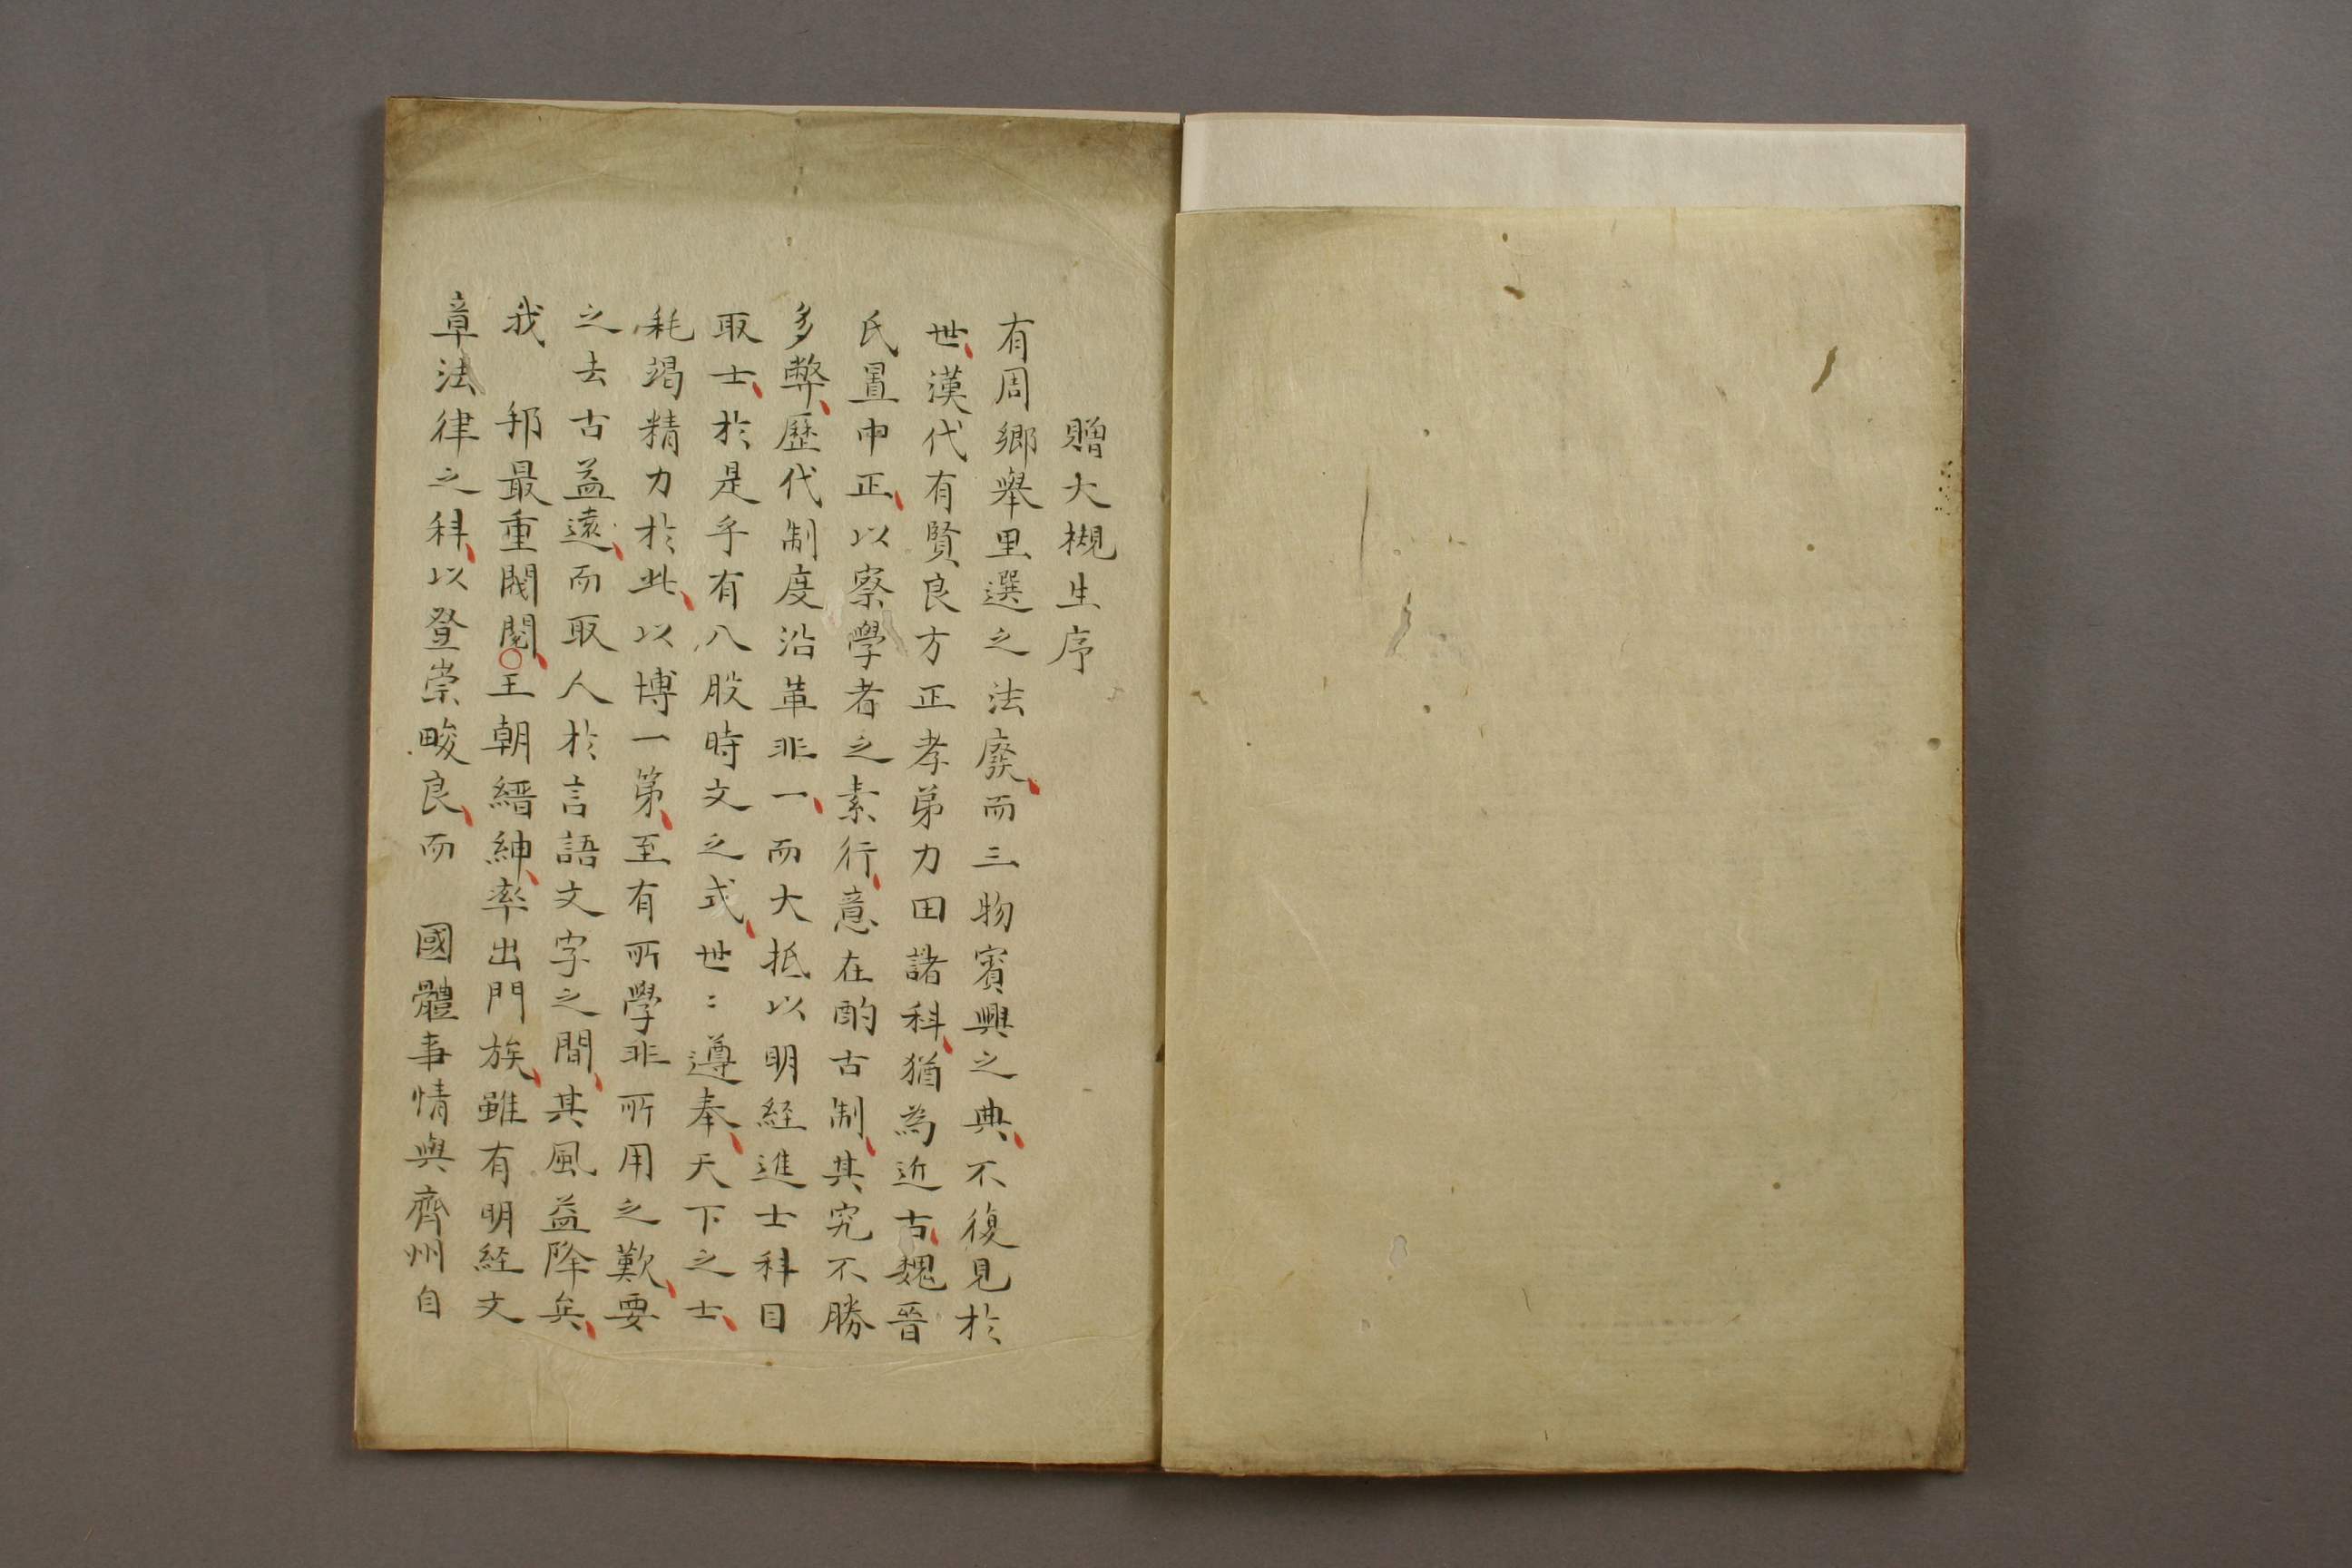 贈大槻生序
有周鄉舉里選之法廢、而三物賓興之典、不復見於
世、漢代有賢良方正孝弟力田諸科、猶為近古、魏晉
氏置中正、以察學者之素行、意在酌古制、其究不勝
多弊、歷代制度沿革非一、而大抵以明経進士科目
取士、於是乎有八股時文之式、世〻遵奉、天下之士、
耗竭精力於此、以博一第、至有所學非所用之歎、要
之去古益遠、而取人於言語文字之間、其風益降矣、
我　邦最重閥閱、○王朝縉紳、率出門族、雖有明経文
章法律之科、以登崇畯良、而　國體事情與齊州自